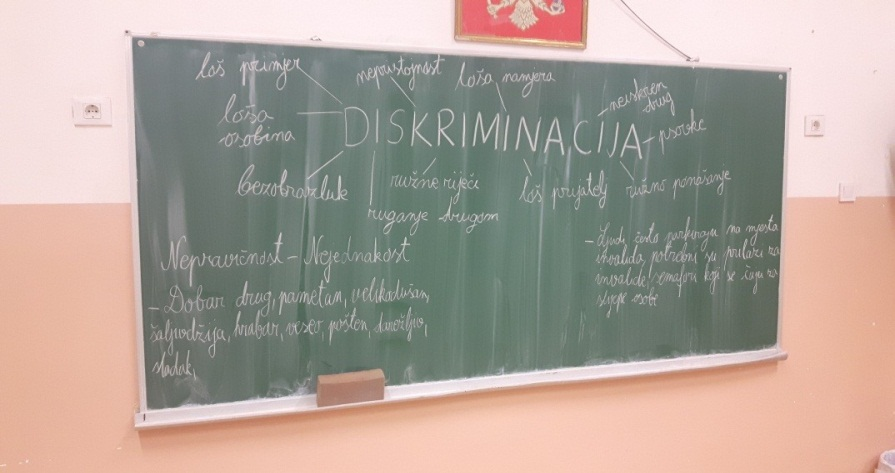 loš primjer
nepristojnost
loša namjera
neiskren
drug
loša
osobina
DISKRIMINACIJA
psovke
bezobrazluk
ružne riječi
loš prijatelj
ružno ponašanje
ruganje drugom
Nepravičnost - Nejednakost
- Dobar drug, pametan, velikodušan,
šaljivdžija, hrabar, veseo, pošten, darežljiv,
sladak,
- Ljudi često parkiraju na mjesta
invalida, potrebni su prilazi za
invalide, semafori koji se čuju za
slijepe osobe